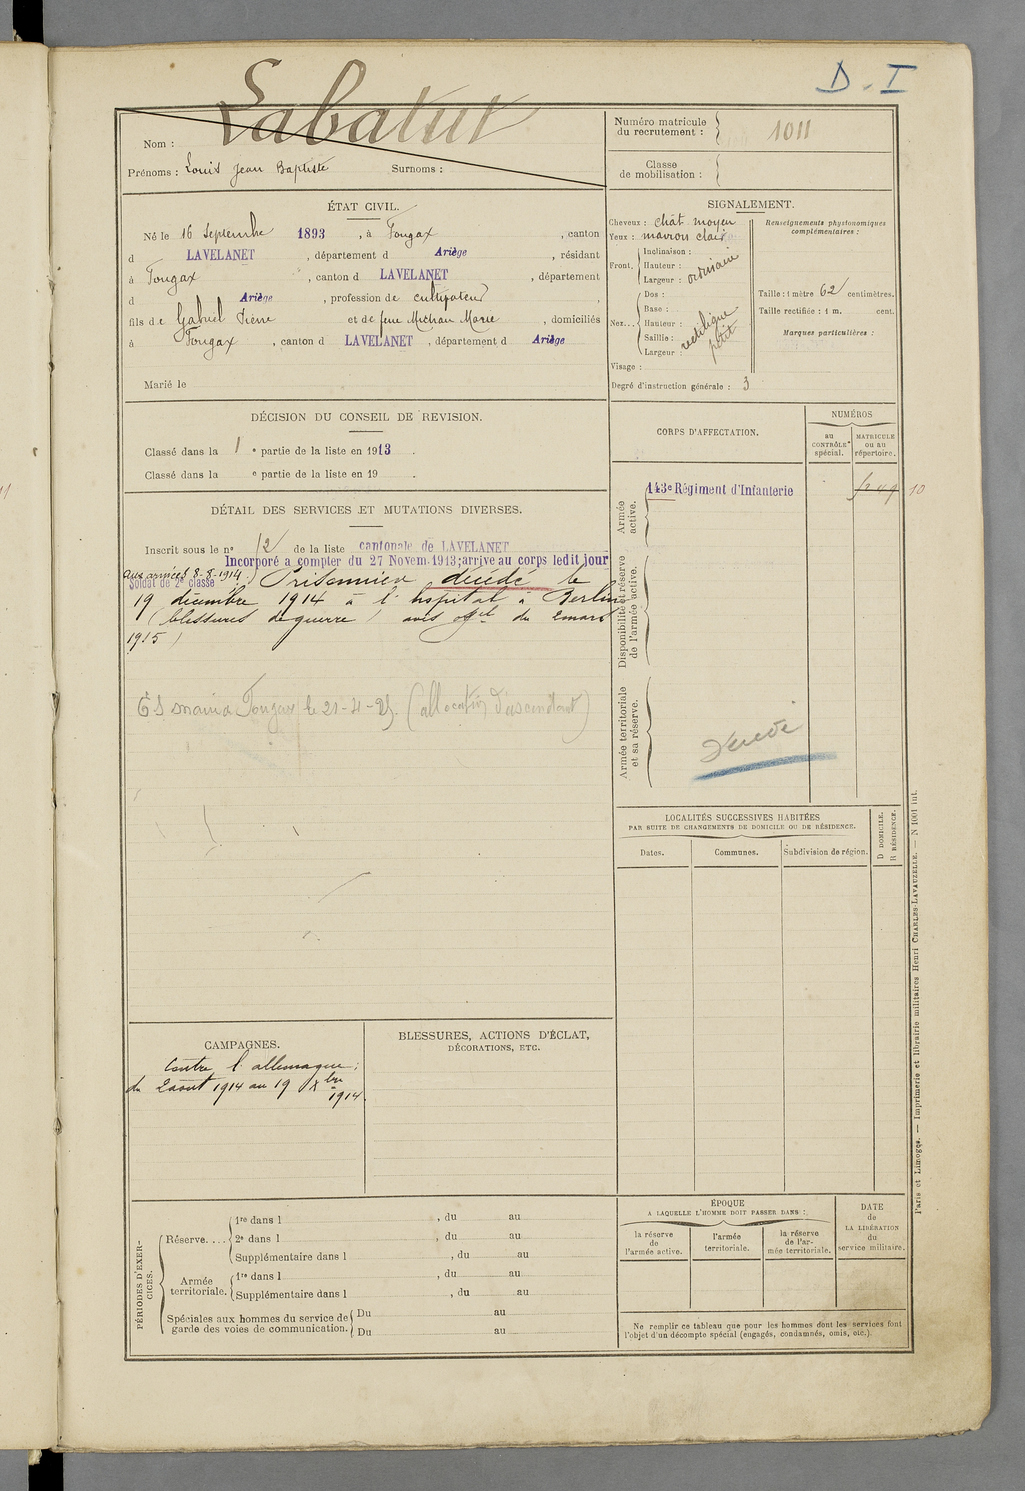 D. I
Labatut
Nom :
Prénoms : Louis Jean Baptiste Surnoms :
Numéro matricule
du recrutement : 1011
Classe
de mobilisation :
ÉTAT CIVIL.
Né le 16 Septembre 1893, à Fougax, canton
d LAVELANET, département d Ariège, résidant
à Fougax, canton d LAVELANET, département
d Ariège, profession de cultivateur,
fils de Gabriel Pierre et de feue Michau Marie, domiciliés
à Fougax, canton d LAVELANET, département d Ariège
Marié le
SIGNALEMENT.
Cheveux : chât moyen
Yeux : marron clair
Front. Inclinaison :
Hauteur : ordinaire
Largeur :
Nez... Dos :
Base :
Hauteur : rectiligne
Saillie : petit
Largeur :
Visage :
Degré d'instruction générale : 3
Renseignements physionomiques
complémentaires :
Taille : 1 mètre 62 centimètres.
Taille rectifiée : 1 m. cent.
Marques particulières :
DÉCISION DU CONSEIL DE REVISION.
Classé dans la 1 e partie de la liste en 1913.
Classé dans la e partie de la liste en 19 .
CORPS D'AFFECTATION.
NUMÉROS
au
CONTRÔLE
spécial.
MATRICULE
ou au
répertoire.
Armée
active.
143e Régiment d'Infanterie
10
Disponibilité et réserve
de l'armée active.
Armée territoriale
et sa réserve.
DÉTAIL DES SERVICES ET MUTATIONS DIVERSES.
Inscrit sous le n° 12 de la liste cantonale de LAVELANET
Incorporé a compter du 27 Novem. 1913; arrive au corps ledit jour
aux armées 8-8-1914.
Soldat de 2e classe
Prisonnier décédé le
19 décembre 1914 à l'hopital à Berlin
(blessures de guerre) avis offel du 2 mars
1915)
mairie Fougax le 21-4-25. (allocation d'ascendant)
LOCALITÉS SUCCESSIVES HABITÉES
PAR SUITE DE CHANGEMENTS DE DOMICILE OU DE RÉSIDENCE.
Dates.
Communes.
Subdivision de région.
D DOMICILE.
R RÉSIDENCE.
CAMPAGNES.
Contre l'allemagne :
du 2 août 1914 au 19 Xbre
1914.
BLESSURES, ACTIONS D'ÉCLAT,
DÉCORATIONS, ETC.
PÉRIODES D'EXER-
CICES.
Réserve....
1re dans l , du au
2e dans l , du au
Supplémentaire dans l , du au
Armée
territoriale.
1re dans l , du au
Supplémentaire dans l , du au
Spéciales aux hommes du service de
garde des voies de communication.
Du au
Du au
ÉPOQUE
A LAQUELLE L'HOMME DOIT PASSER DANS :
la réserve
de
l'armée active.
l'armée
territoriale.
la réserve
de l'ar-
mée territoriale.
DATE
de
LA LIBÉRATION
du
service militaire.
Ne remplir ce tableau que pour les hommes dont les services font
l'objet d'un décompte spécial (engagés, condamnés, omis, etc.).
Paris et Limoges. — Imprimerie et librairie militaires Henri CHARLES-LAVAUZELLE. — N 1001 int.